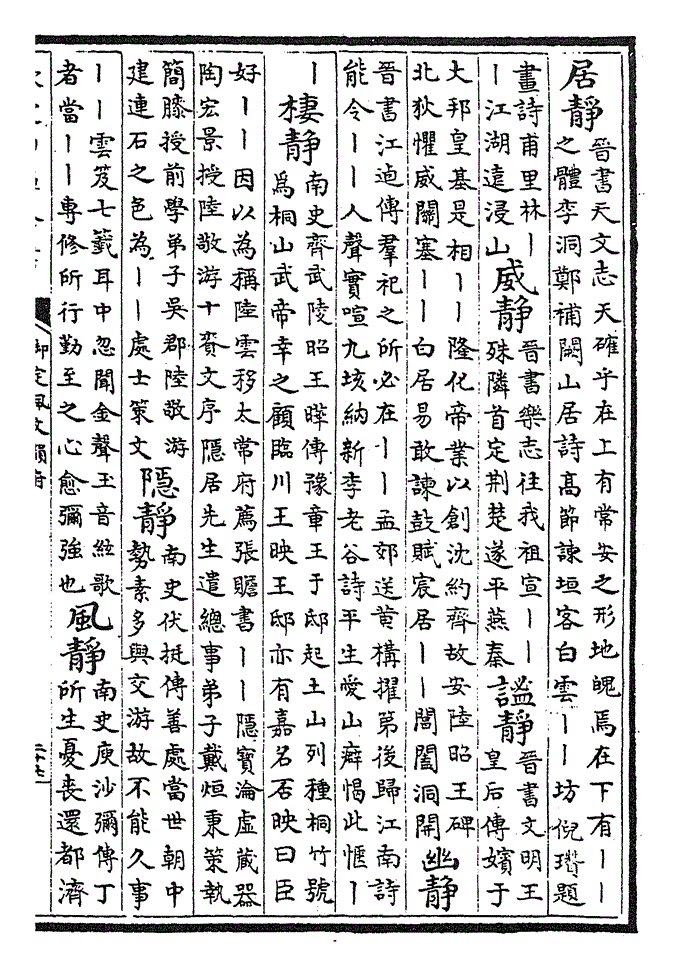 居靜晉書天文志天確乎在上有常安之形地魄焉在下有丨丨
之體李洞鄭補闕山居詩高節諫垣客白雲丨丨坊倪瓚題
畫詩甫里林丨
丨江湖遠浸山
威靜晉書樂志往我祖宣丨丨
殊隣首定荆楚遂平燕秦
謐靜晉書文明王
皇后傳嬪于
大邦皇基是相丨丨隆化帝業以創沈約齊故安陸昭王碑
北狄懼威關塞丨丨白居易敢諫鼓賦宸居丨丨閶闔洞開
幽靜
晉書江逌傳羣祀之所必在丨丨孟郊送黄構擢第後歸江南詩
能令丨丨人聲實喧九垓納新李老谷詩平生愛山癖愒此愜丨
丨
棲靜南史齊武陵昭王曄傳豫章王于邸起土山列種桐竹號
爲桐山武帝幸之顧臨川王映王邸亦有嘉名否映曰臣
好丨丨因以為稱陸雲移太常府薦張贍書丨丨隱寶淪虛藏器
陶宏景授陸敬游十賚文序隱居先生遣總事弟子戴烜秉策執
簡膝授前學弟子吳郡陸敬游
建連石之色為丨丨處士策文
隱靜南史伏挺傳善處當世朝中
勢素多與交游故不能久事
丨丨雲笈七籖耳中忽聞金聲玉音絃歌
者當丨丨專修所行勤至之心愈彌強也
風靜南史庾沙彌傳丁
所生憂喪還都濟
御定佩文韻府